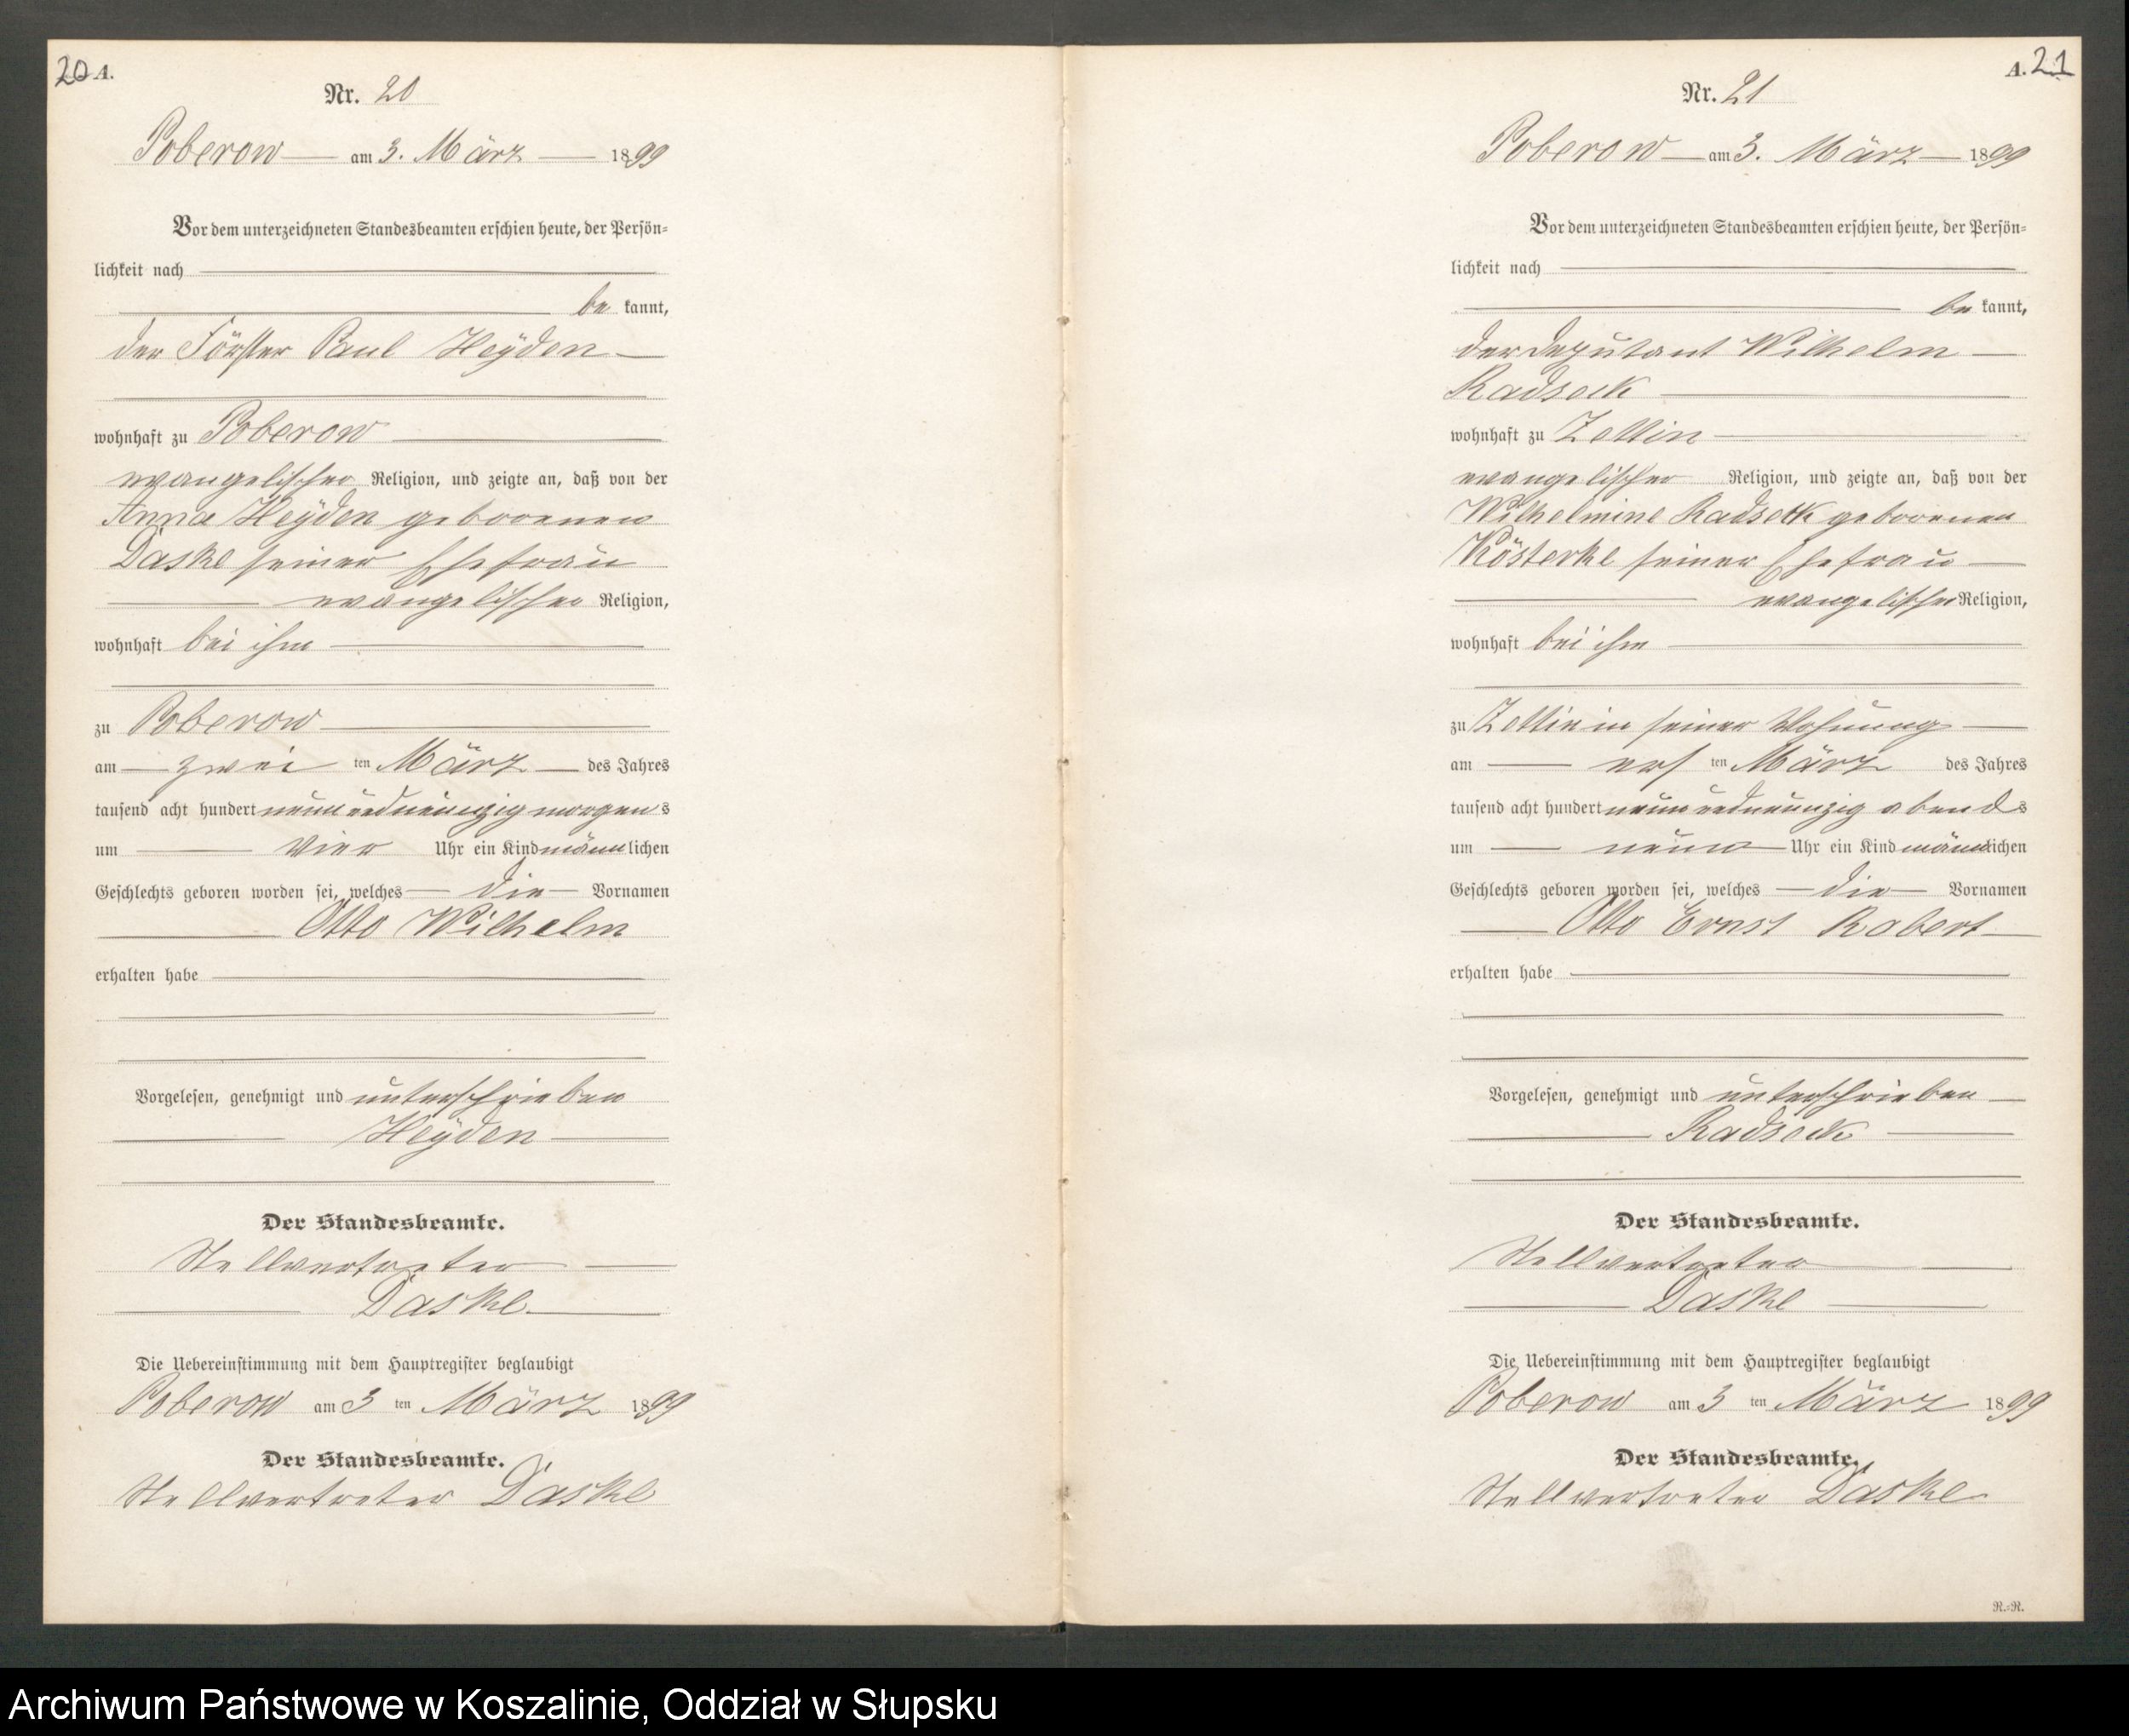 20 A.
Nr. 20
Poberow am 3. März 1899
Vor dem unterzeichneten Standesbeamten erschien heute, der Persön-
lichkeit nach
be kannt,
der Förster Paul Heyden
wohnhaft zu Poberow
evangelischer Religion, und zeigte an, daß von der
Anna Heyden geborenen
Daske seiner Ehefrau
evangelischer Religion,
wohnhaft bei ihm
zu Poberow
am zwei ten März des Jahres
tausend acht hundert neunundneunzig morgens
um vier Uhr ein Kind männlichen
Geschlechts geboren worden sei, welches die Vornamen
Otto Wilhelm
erhalten habe
Vorgelesen, genehmigt und unterschrieben
Heyden
Der Standesbeamte.
Stellvertreter
Daske
Die Uebereinstimmung mit dem Hauptregister beglaubigt
Poberow am 3 ten März 1899
Der Standesbeamte.
Stellvertreter Daske
A. 21
Nr. 21
Poberow am 3. März 1899
Vor dem unterzeichneten Standesbeamten erschien heute, der Persön-
lichkeit nach
be kannt,
der Deputant Wilhelm
Radseck
wohnhaft zu Zettin
evangelischer Religion, und zeigte an, daß von der
Wilhelmine Radseck geborenen
Kösterke seiner Ehefrau
evangelischer Religion,
wohnhaft bei ihm
zu Zettin in seiner Wohnung
am ers ten März des Jahres
tausend acht hundert neunundneunzig abends
um neun Uhr ein Kind männlichen
Geschlechts geboren worden sei, welches die Vornamen
Otto Ernst Robert
erhalten habe
Vorgelesen, genehmigt und unterschrieben
Radseck
Der Standesbeamte.
Stellvertreter
Daske
Die Uebereinstimmung mit dem Hauptregister beglaubigt
Poberow am 3 ten März 1899
Der Standesbeamte.
Stellvertreter Daske
R.-R.
Archiwum Państwowe w Koszalinie, Oddział w Słupsku